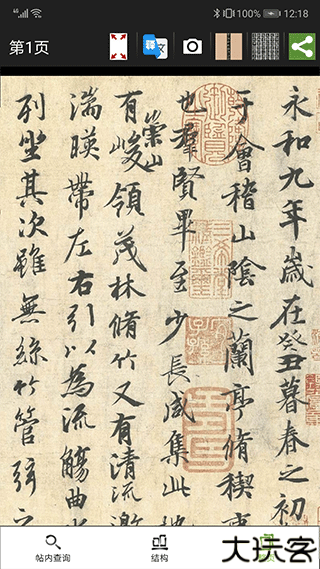 4G 100% 12:18
第1页
释文
永和九年歲在癸丑暮春之初
于會稽山陰之蘭亭脩稧事
也羣賢畢至少長咸集此地
有崇山峻領茂林脩竹又有清流激
湍暎帶左右引以為流觴曲水
列坐其次雖無絲竹管弦之
帖内查询
结构
大玩客